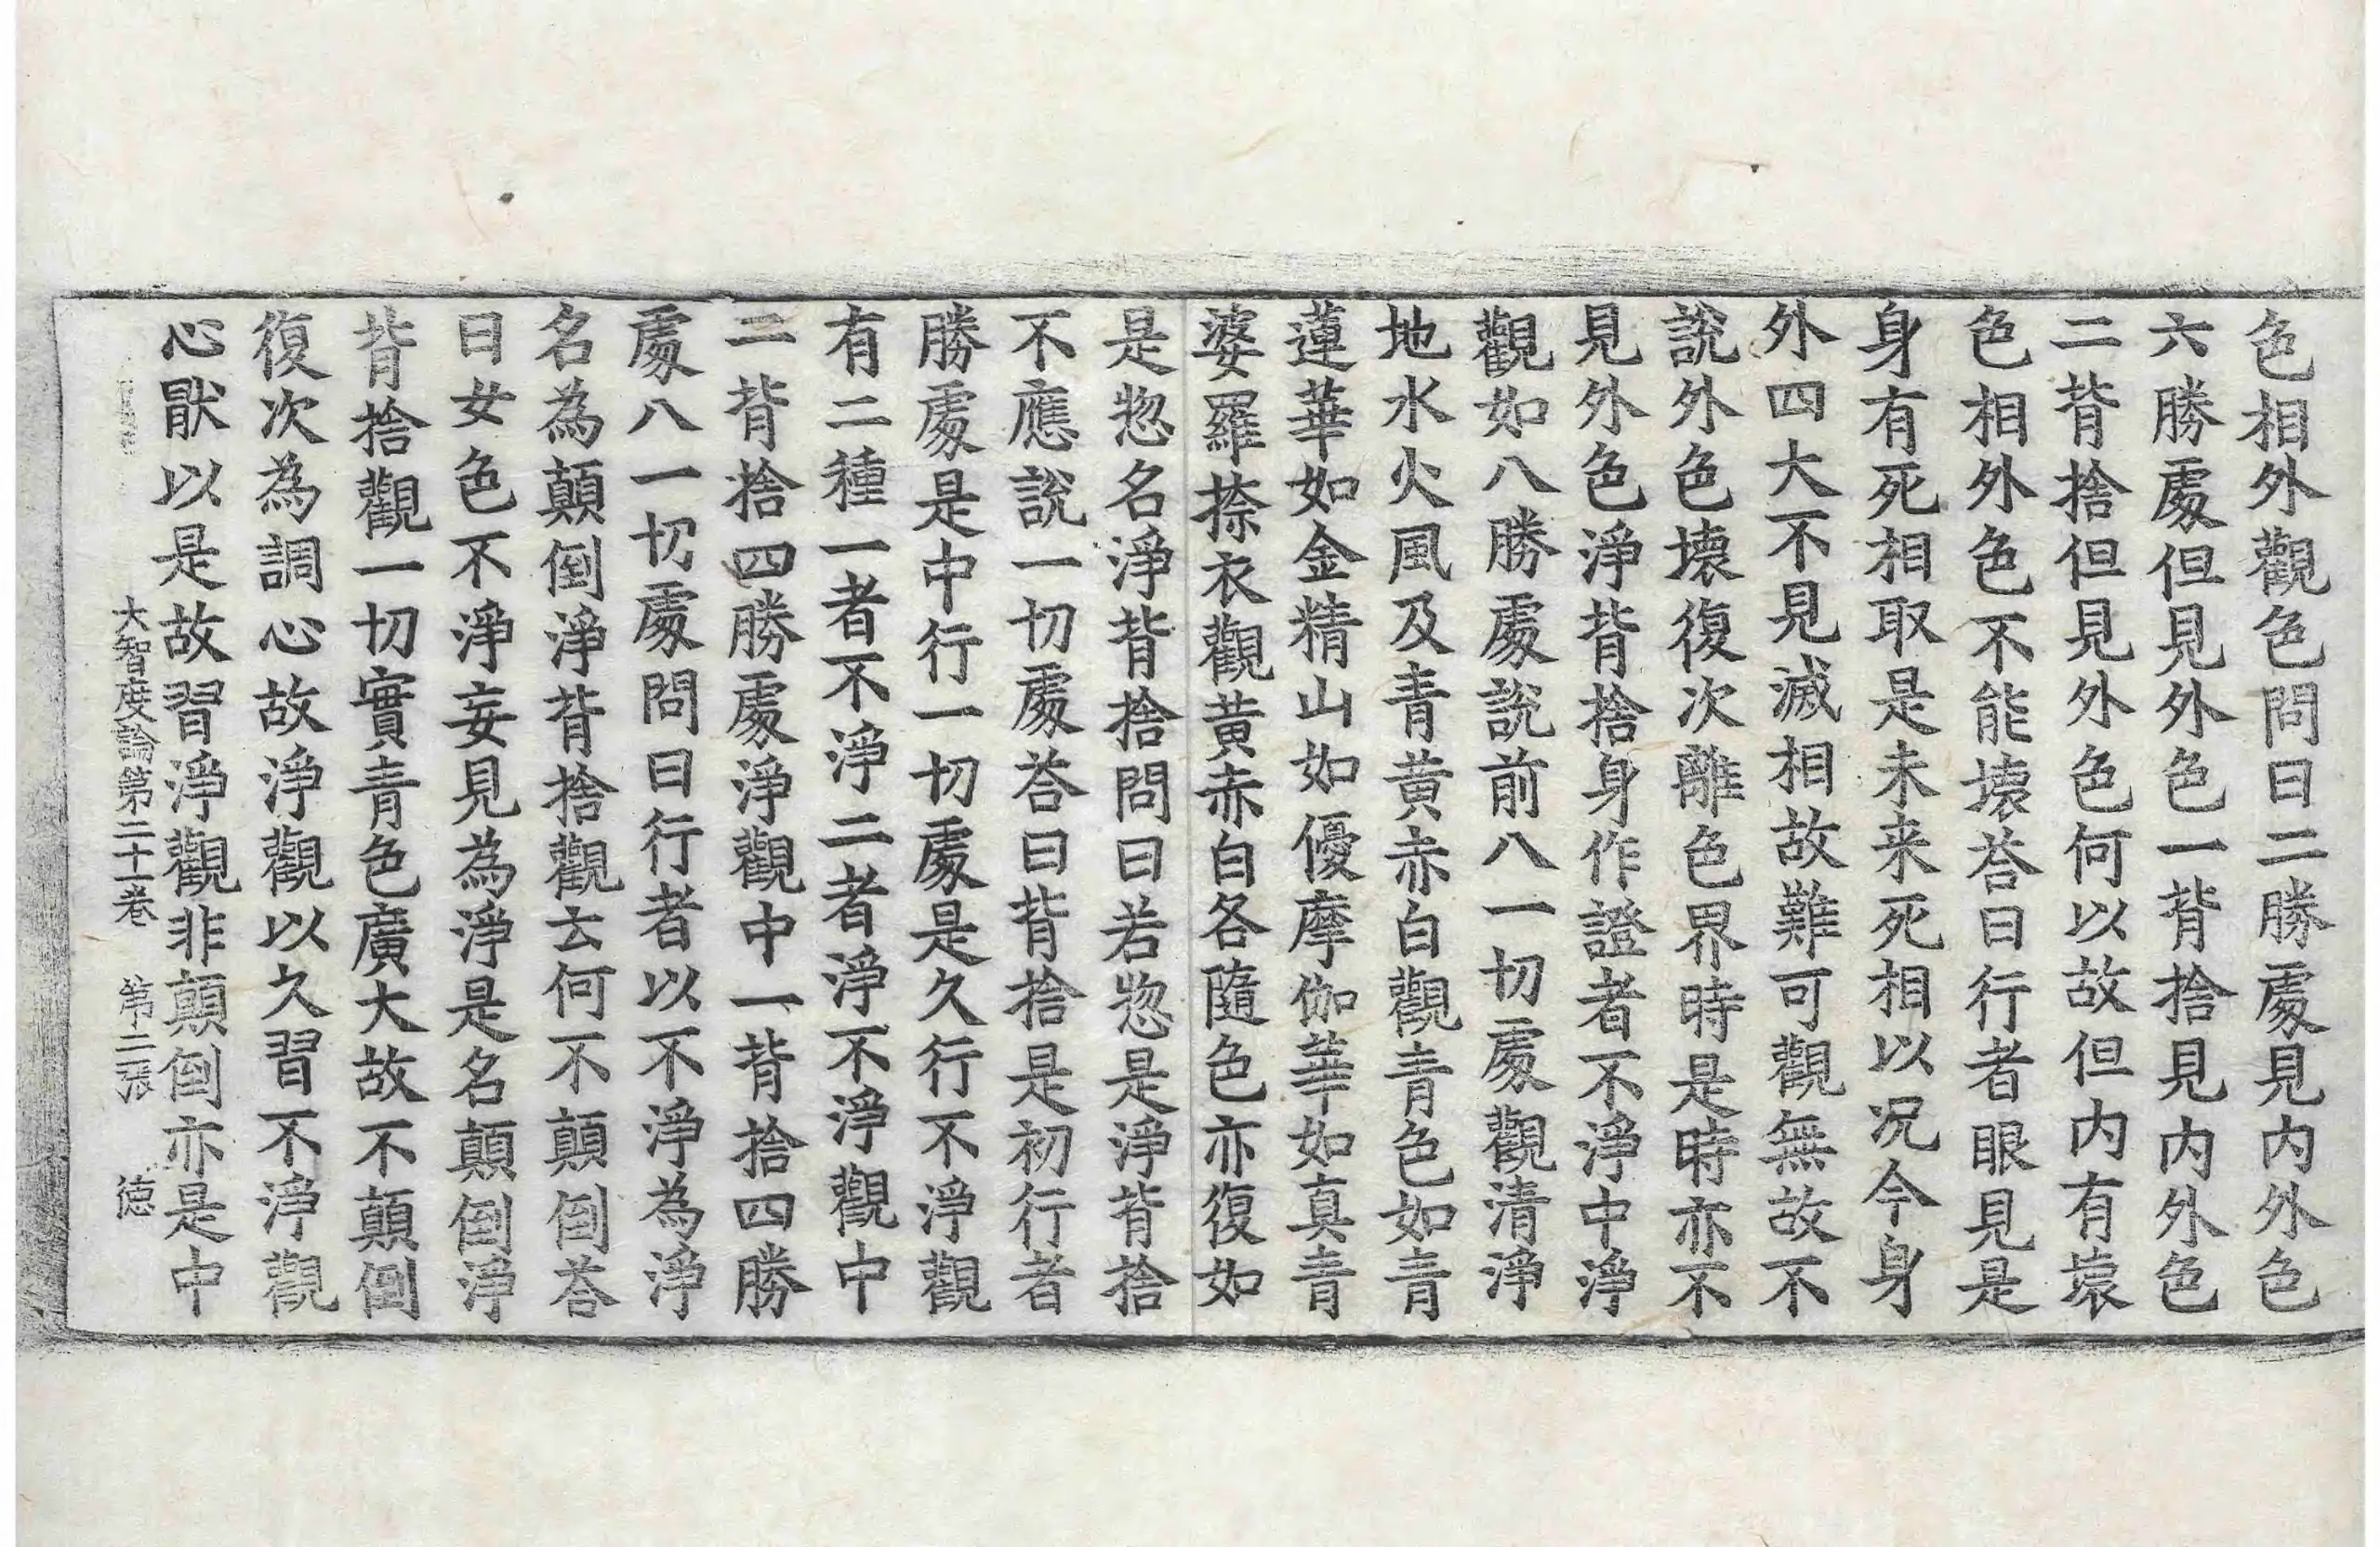 色相外觀色問曰二勝處見内外色
六勝處但見外色一背捨見内外色
二背捨但見外色何以故但内有壞
色相外色不能壞荅曰行者眼見是
身有死相取是未来死相以况今身
外四大不見滅相故難可觀無故不
說外色壞復次離色界時是時亦不
見外色淨背捨身作證者不淨中淨
觀如八勝處說前八一切處觀清淨
地水火風及青黄赤白觀青色如青
蓮華如金精山如優摩伽華如真青
婆羅捺衣觀黄赤白各隨色亦復如
是惣名淨背捨問曰若惣是淨背捨
不應說一切處荅曰背捨是初行者
勝處是中行一切處是久行不淨觀
有二種一者不淨二者淨不淨觀中
二背捨四勝處淨觀中一背捨四勝
處八一切處問曰行者以不淨為淨
名為顛倒淨背捨觀云何不顛倒荅
曰女色不淨妄見為淨是名顛倒淨
背捨觀一切實青色廣大故不顛倒
復次為調心故淨觀以久習不淨觀
心猒以是故習淨觀非顛倒亦是中
大智度論第二十一卷　第二張　德